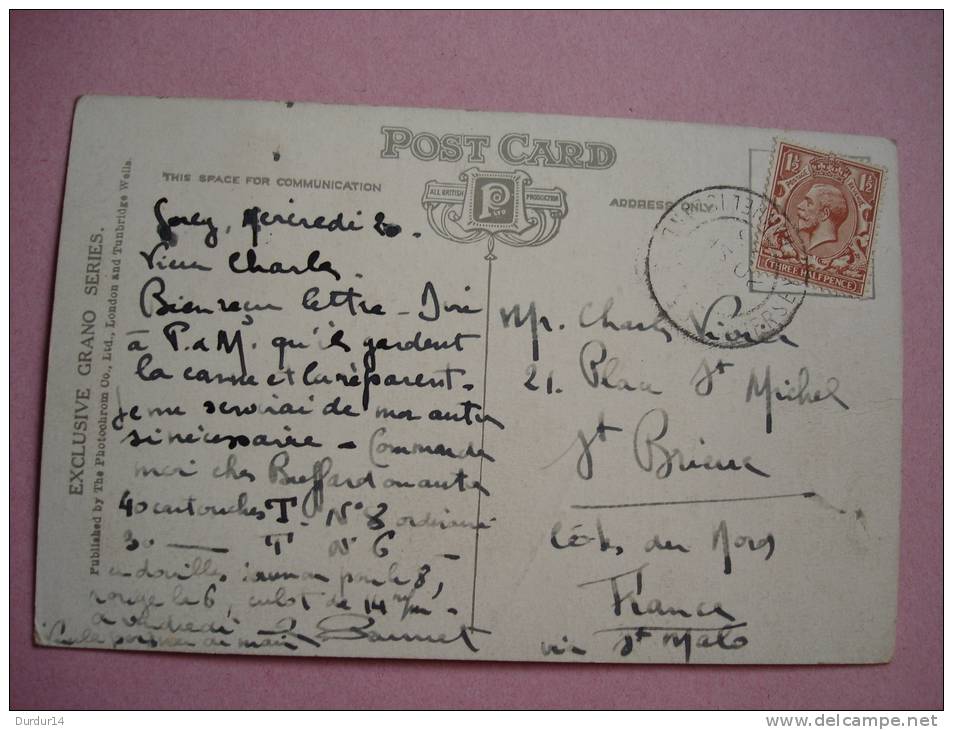 POST CARD
THIS SPACE FOR COMMUNICATION
ALL BRITISH
PRODUCTION
ADDRESS ONLY
1½
1½
POSTAGE
THREE HALFPENCE
EXCLUSIVE GRANO SERIES.
Published by The Photochrom Co., Ltd., London and Tunbridge Wells.
Gorey, Mercredi 20.
Vieux Charles.
Bien reçu lettre -
à P. et M. qu'ils gardent
la canne et la réparent.
Je me servirai de mon autre
si nécessaire - Commande
moi chez
40 cartouches T. N° 8 ordinaire
30 — T N° 6
en douilles pour le 8,
rouge le 6, culot de 14 m/m.
à vendredi
Mr. Charles
21. Place St Michel
St Brieuc
Côtes du Nord
France
via St Malo
Durdur14
www.delcampe.net